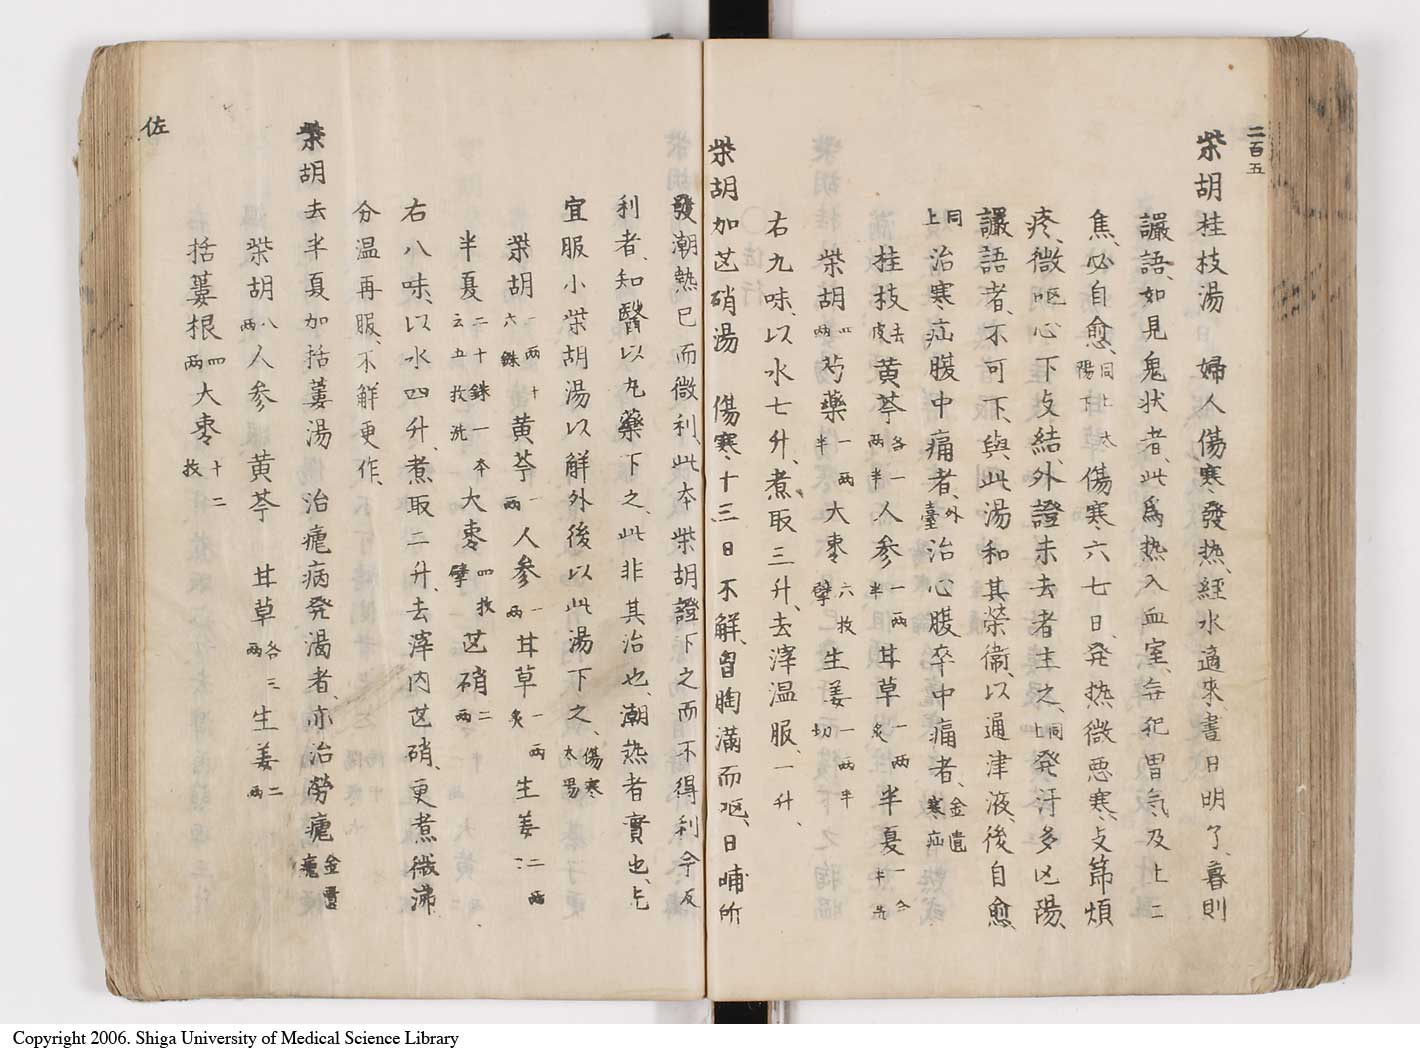 二百五
柴胡桂枝湯 婦人傷寒發热、經水適來晝日明了、暮則
讝語、如見鬼状者、此爲热入血室、毋犯胃氣、及上二
焦、必自愈、同上太陽下傷寒六七日、発热微悪寒、支節煩
疼、微呕心下支結、外證未去者主之、同上発汗多亾陽、
讝語者、不可下與此湯和其荣衞、以通津液、後自愈
同上治寒疝腹中痛者、外臺治心腹卒中痛者、金遺寒疝
桂枝去皮黄芩各一兩半人参一兩半甘草一兩炙半夏一合半洗
柴胡四兩芍藥一兩半大枣六枚擘生姜一兩半切
右九味、以水七升、煮取三升、去滓温服、一升、
柴胡加芒硝湯 傷寒十三日不解、胷胸滿而呕、日晡所
發潮熱已而微利、此本柴胡證下之而不得利今反
利者、知醫以丸藥下之、此非其治也、潮热者實也、先
宜服小柴胡湯以解外後以此湯下之、傷寒太昜
柴胡一兩十六銖黄芩一兩人参一兩甘草一兩炙生姜二兩
半夏二十銖一本云五枚洗大枣四枚擘芒硝二兩
右八味、以水四升、煮取二升、去滓内芒硝、更煮微沸、
分温再服、不解更作、
柴胡去半夏加括蔞湯 治瘧病発渴者、亦治勞瘧金匱瘧
柴胡八兩人参 黄芩 甘草各三兩生姜二兩
括蔞根四兩大枣十二枚
佐